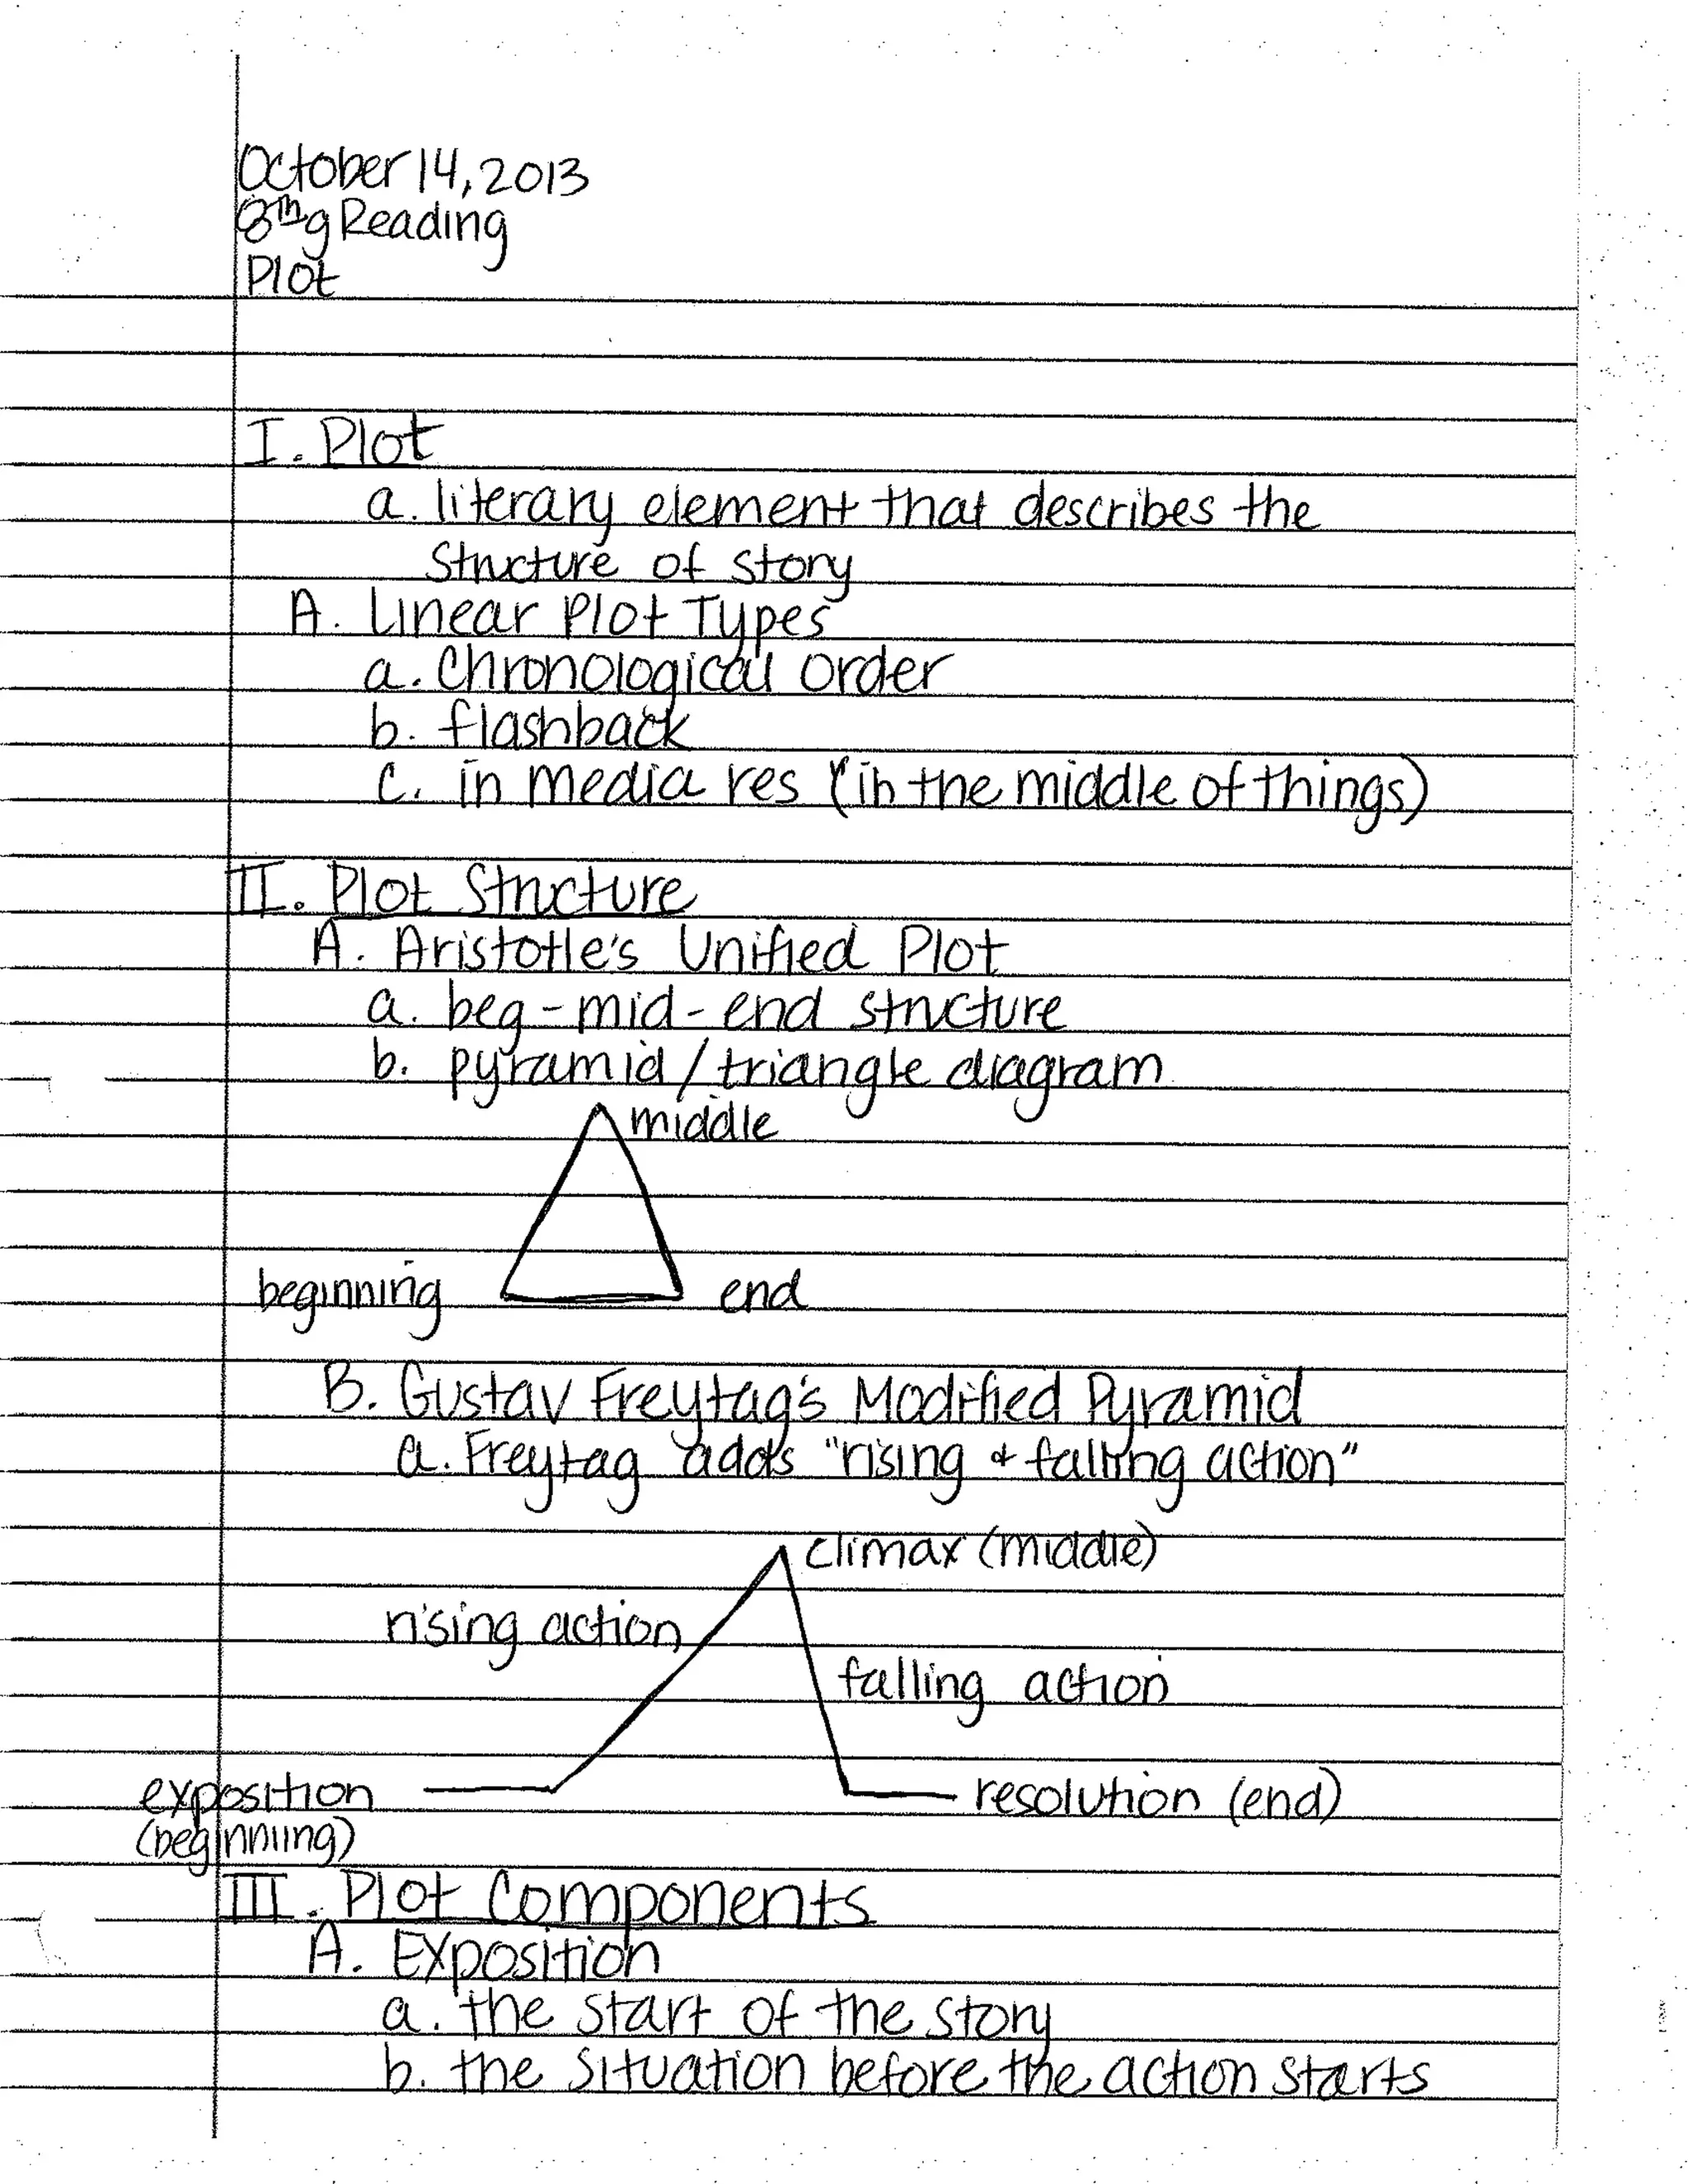 October 14, 2013
8th g Reading
Plot
I. Plot
a. literary element that describes the
structure of story
A. Linear Plot Types
a. Chronological order
b. flashback
c. in media res (in the middle of things)
II. Plot Structure
A. Aristotle's Unified Plot
a. beg-mid-end structure
b. pyramid/triangle diagram
middle
beginning end
B. Gustav Freytag's Modified Pyramid
a. Freytag adds "rising & falling action"
climax (middle)
rising action
falling action
exposition resolution (end)
(beginning)
III. Plot Components
A. Exposition
a. the start of the story
b. the situation before the action starts